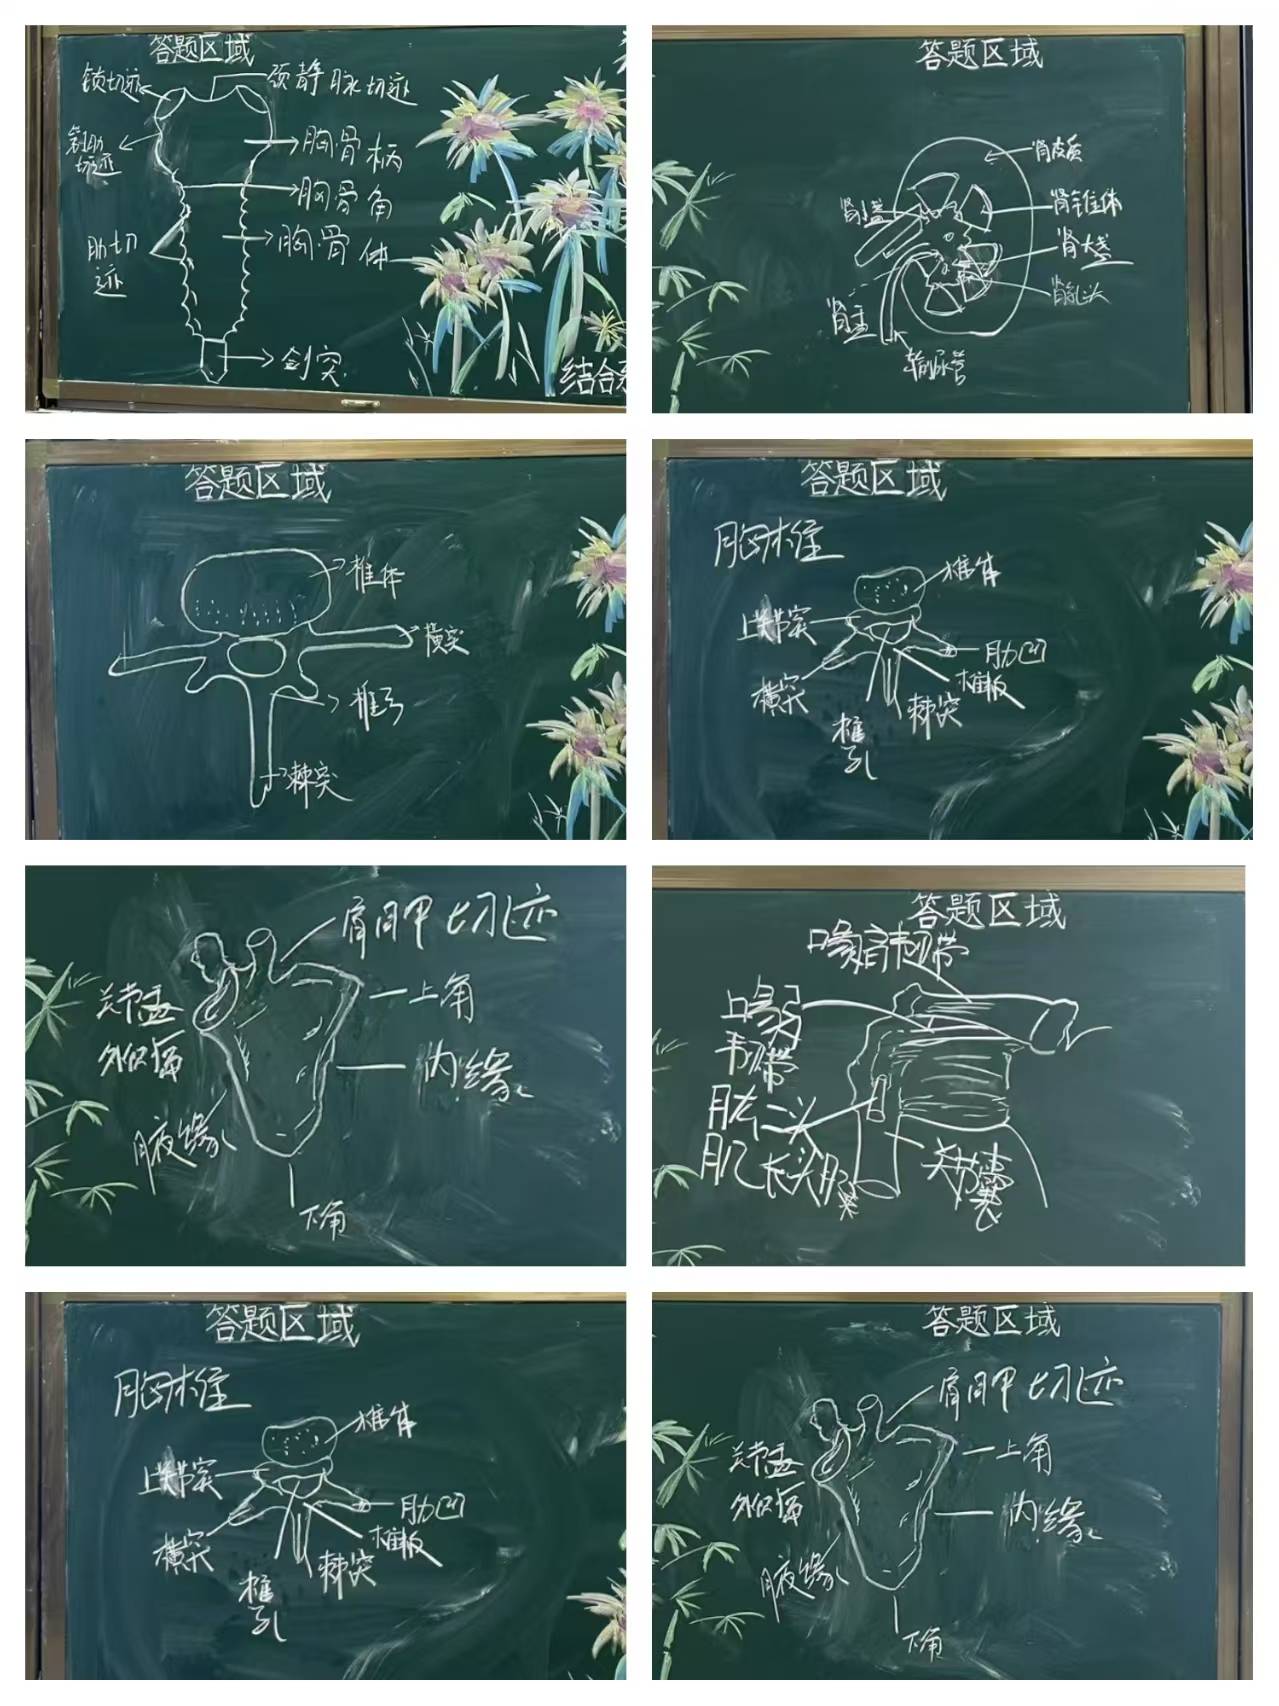 答题区域
锁切迹
颈静脉切迹
第1肋
切迹
胸骨柄
胸骨角
肋切
迹
胸骨体
剑突
结合
答题区域
肾皮质
肾小盏
肾锥体
肾大盏
肾乳头
肾盂
输尿管
答题区域
椎体
横突
椎弓
棘突
答题区域
胸椎
椎体
上关节突
肋凹
横突
椎板
棘突
椎
孔
肩胛切迹
关节盂
上角
外侧角
内缘
腋缘
下角
答题区域
喙肩韧带
喙肱
韧带
肱二头
肌长头腱
关节囊
答题区域
胸椎
椎体
上关节突
肋凹
横突
椎板
棘突
椎
孔
答题区域
肩胛切迹
关节盂
上角
外侧角
内缘
腋缘
下角